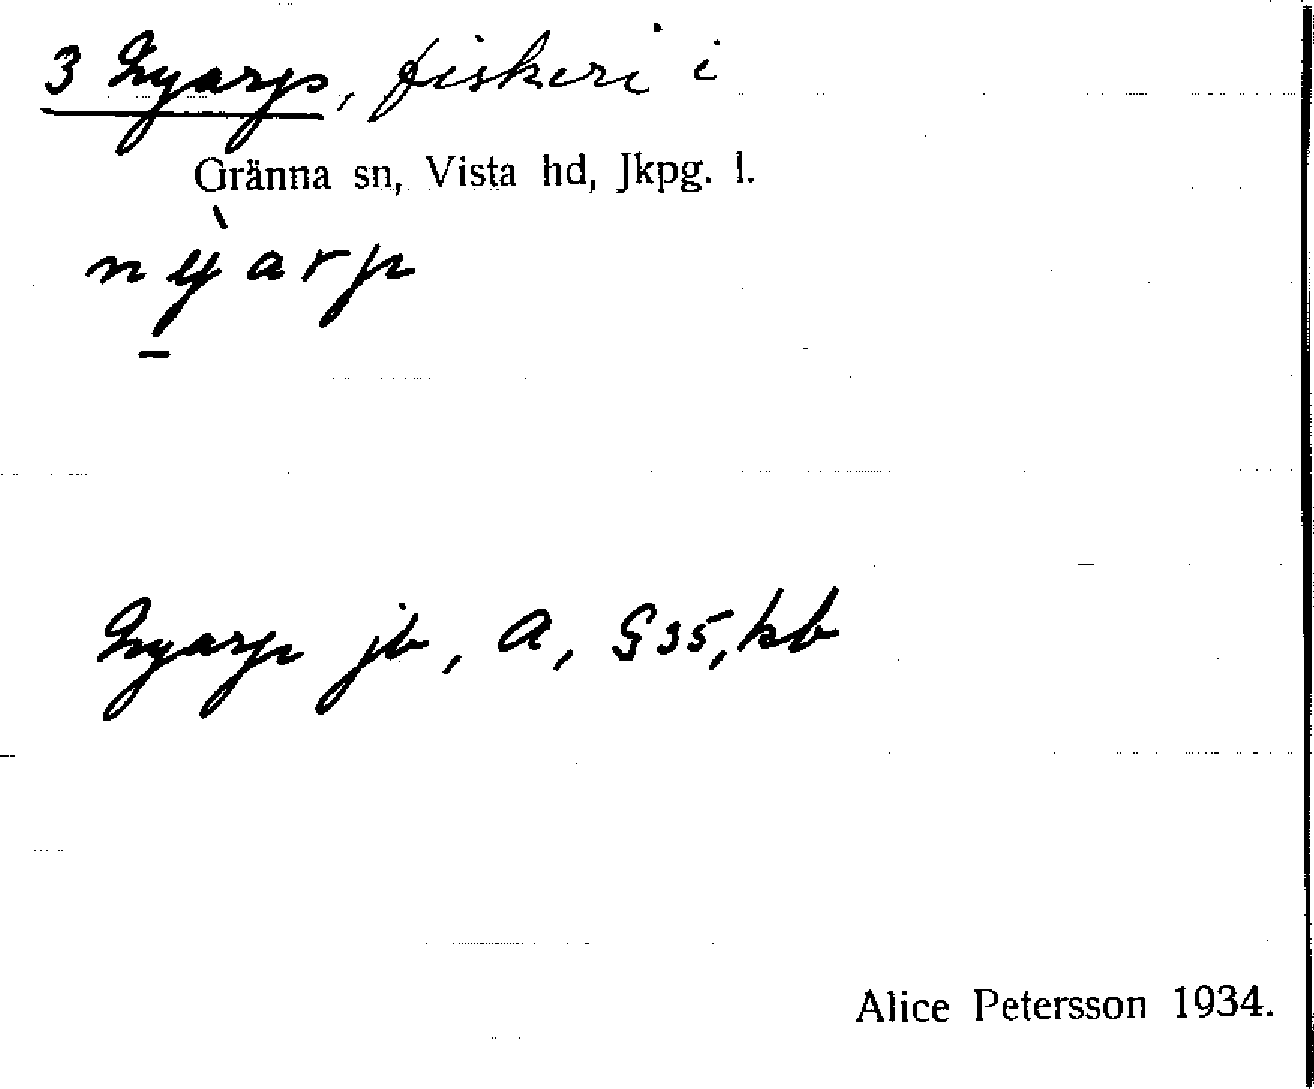 3 Nyarp, fiskeri i
Gränna sn, Vista hd, Jkpg. l.
nỳarp
Nyarp jb, A, G35, kb
Alice Petersson 1934.